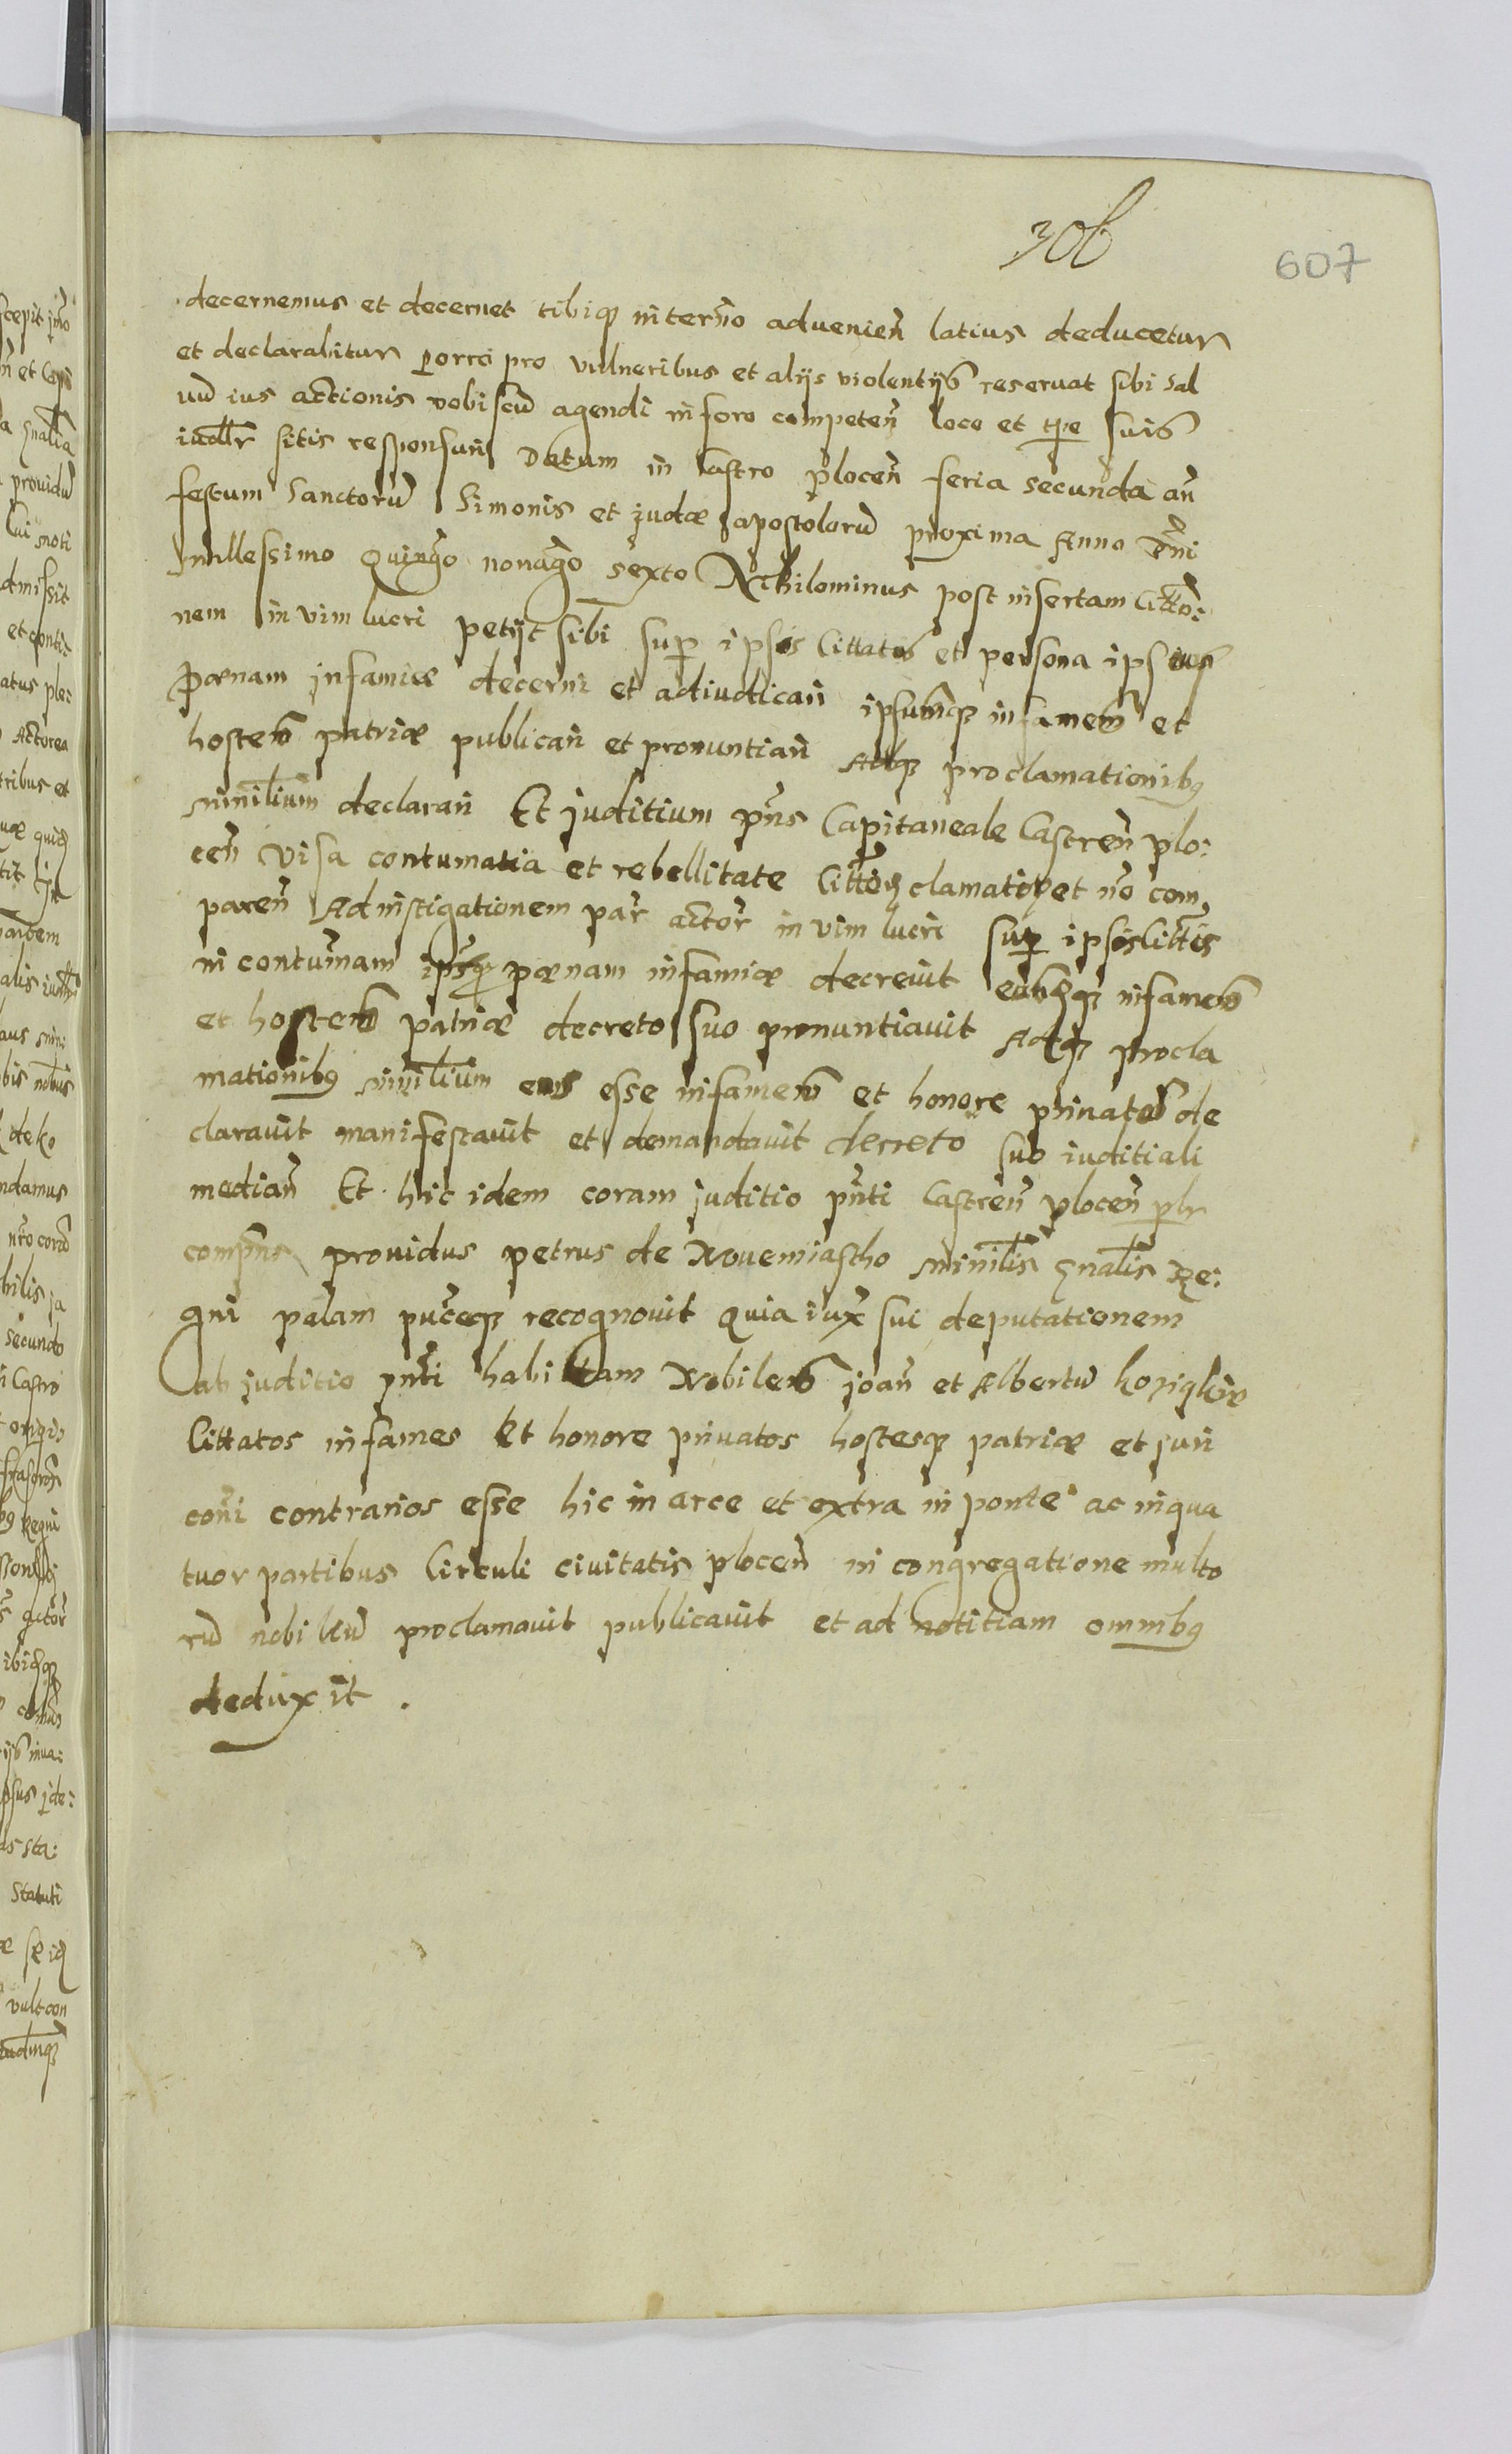 306
607
decernemus et decernet tibiqȝ in termo advenien̄ latius deducetur
et declarabitur porro pro vulneribus et alijs violentijs reservat sibi sal
vū ius actionis vobiscū agendi in foro competen̄ loco et tpe suis
iudlr sitis responsuri Datum in Castro plocen̄ feria secunda an̄
festum Sanctorū Simonis et judæ apostolorū proxima Anno Dn̄i
millessimo Quingo nonago sexto Nihilominus post insertam Citto:
nem in vim lucri petijt sibi sup ipsos Cittatos et persona ipsius
pœnam infamiæ decerni et adiudicari ipsumqȝ infamem et
hostem patriæ publicari et pronuntiari Adqȝ proclamationibȝ
minilium declarari Et juditium pn̄s Capitaneale Castren̄ plo:
cen̄ visa contumatia et rebellitate Citti clamati et no com
paren̄ Ad instigationem par actor in vim lucri sup ipsos Cittis
in contumam pœnam infamiæ decrevit infamem
et hostem patriæ decreto suo pronuntiavit Adqȝ procla
mationibȝ minilium eos esse infamem et honore privatos de
claravit manifestavit et demandavit decreto suo iuditiali
median̄ Et hic idem coram juditio pn̄ti Castren̄ plocen̄ plr
compn̄s providus petrus de Novemiastho minilis gnalis Re:
gni palam puceqȝ recognovit Quia iux sui deputationem
ab juditio pn̄ti habittam Nobilem joan̄ et Albertū
Cittatos infames Et honore privatos hostesqȝ patriæ et juri
coni contrarios esse hic in arce et extra in ponte ac in qua
tuor partibus Circuli civitatis plocen̄ in congregatione multo
rū nobiliū proclamavit publicavit et ad notitiam omnibȝ
deduxit .